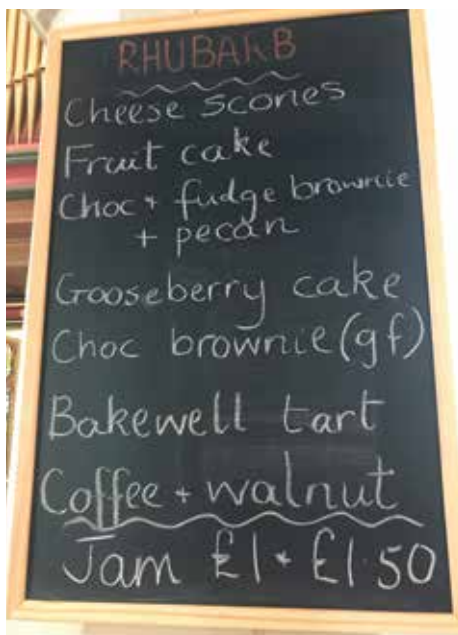 RHUBARB
Cheese scones
Fruit cake
Choc + fudge brownie
+ pecan
Gooseberry cake
Choc brownie (gf)
Bakewell tart
Coffee + walnut
Jam £1 + £1.50